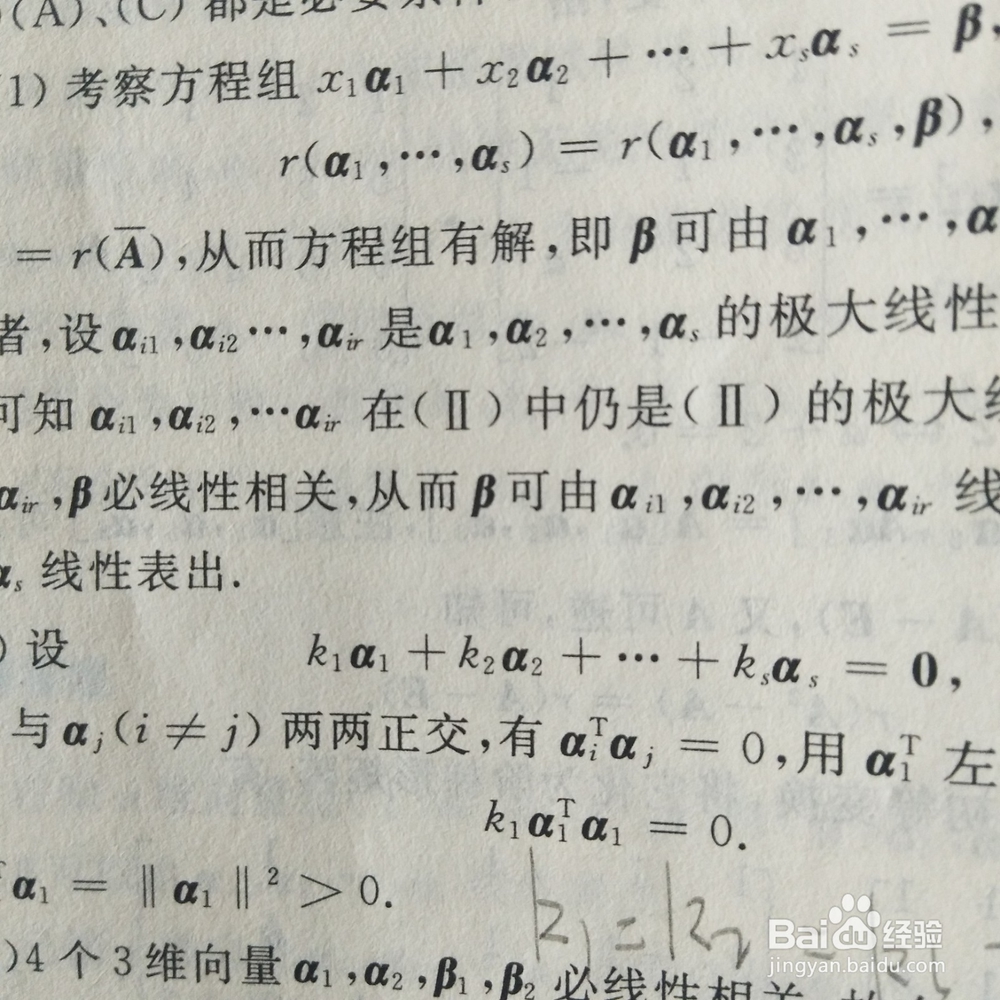 (A)、(C)都是必要条件
1) 考察方程组 x₁α₁ + x₂α₂ + ⋯ + xₛαₛ = β,
r(α₁,⋯,αₛ) = r(α₁,⋯,αₛ,β),
= r(Ā),从而方程组有解,即 β 可由 α₁,⋯,α
者,设 αᵢ₁,αᵢ₂⋯,αᵢᵣ 是 α₁,α₂,⋯,αₛ 的极大线性
可知 αᵢ₁,αᵢ₂,⋯αᵢᵣ 在(Ⅱ)中仍是(Ⅱ)的极大线
αᵢᵣ,β 必线性相关,从而 β 可由 αᵢ₁,αᵢ₂,⋯,αᵢᵣ 线
αₛ 线性表出.
) 设
k₁α₁ + k₂α₂ + ⋯ + kₛαₛ = 0,
与 αⱼ(i ≠ j) 两两正交,有 αᵢᵀαⱼ = 0,用 α₁ᵀ 左
k₁α₁ᵀα₁ = 0.
ᵀα₁ = ‖α₁‖² > 0.
k₁ = k₂
)4 个 3 维向量 α₁,α₂,β₁,β₂ 必线性相关
Baidu 经验
jingyan.baidu.com